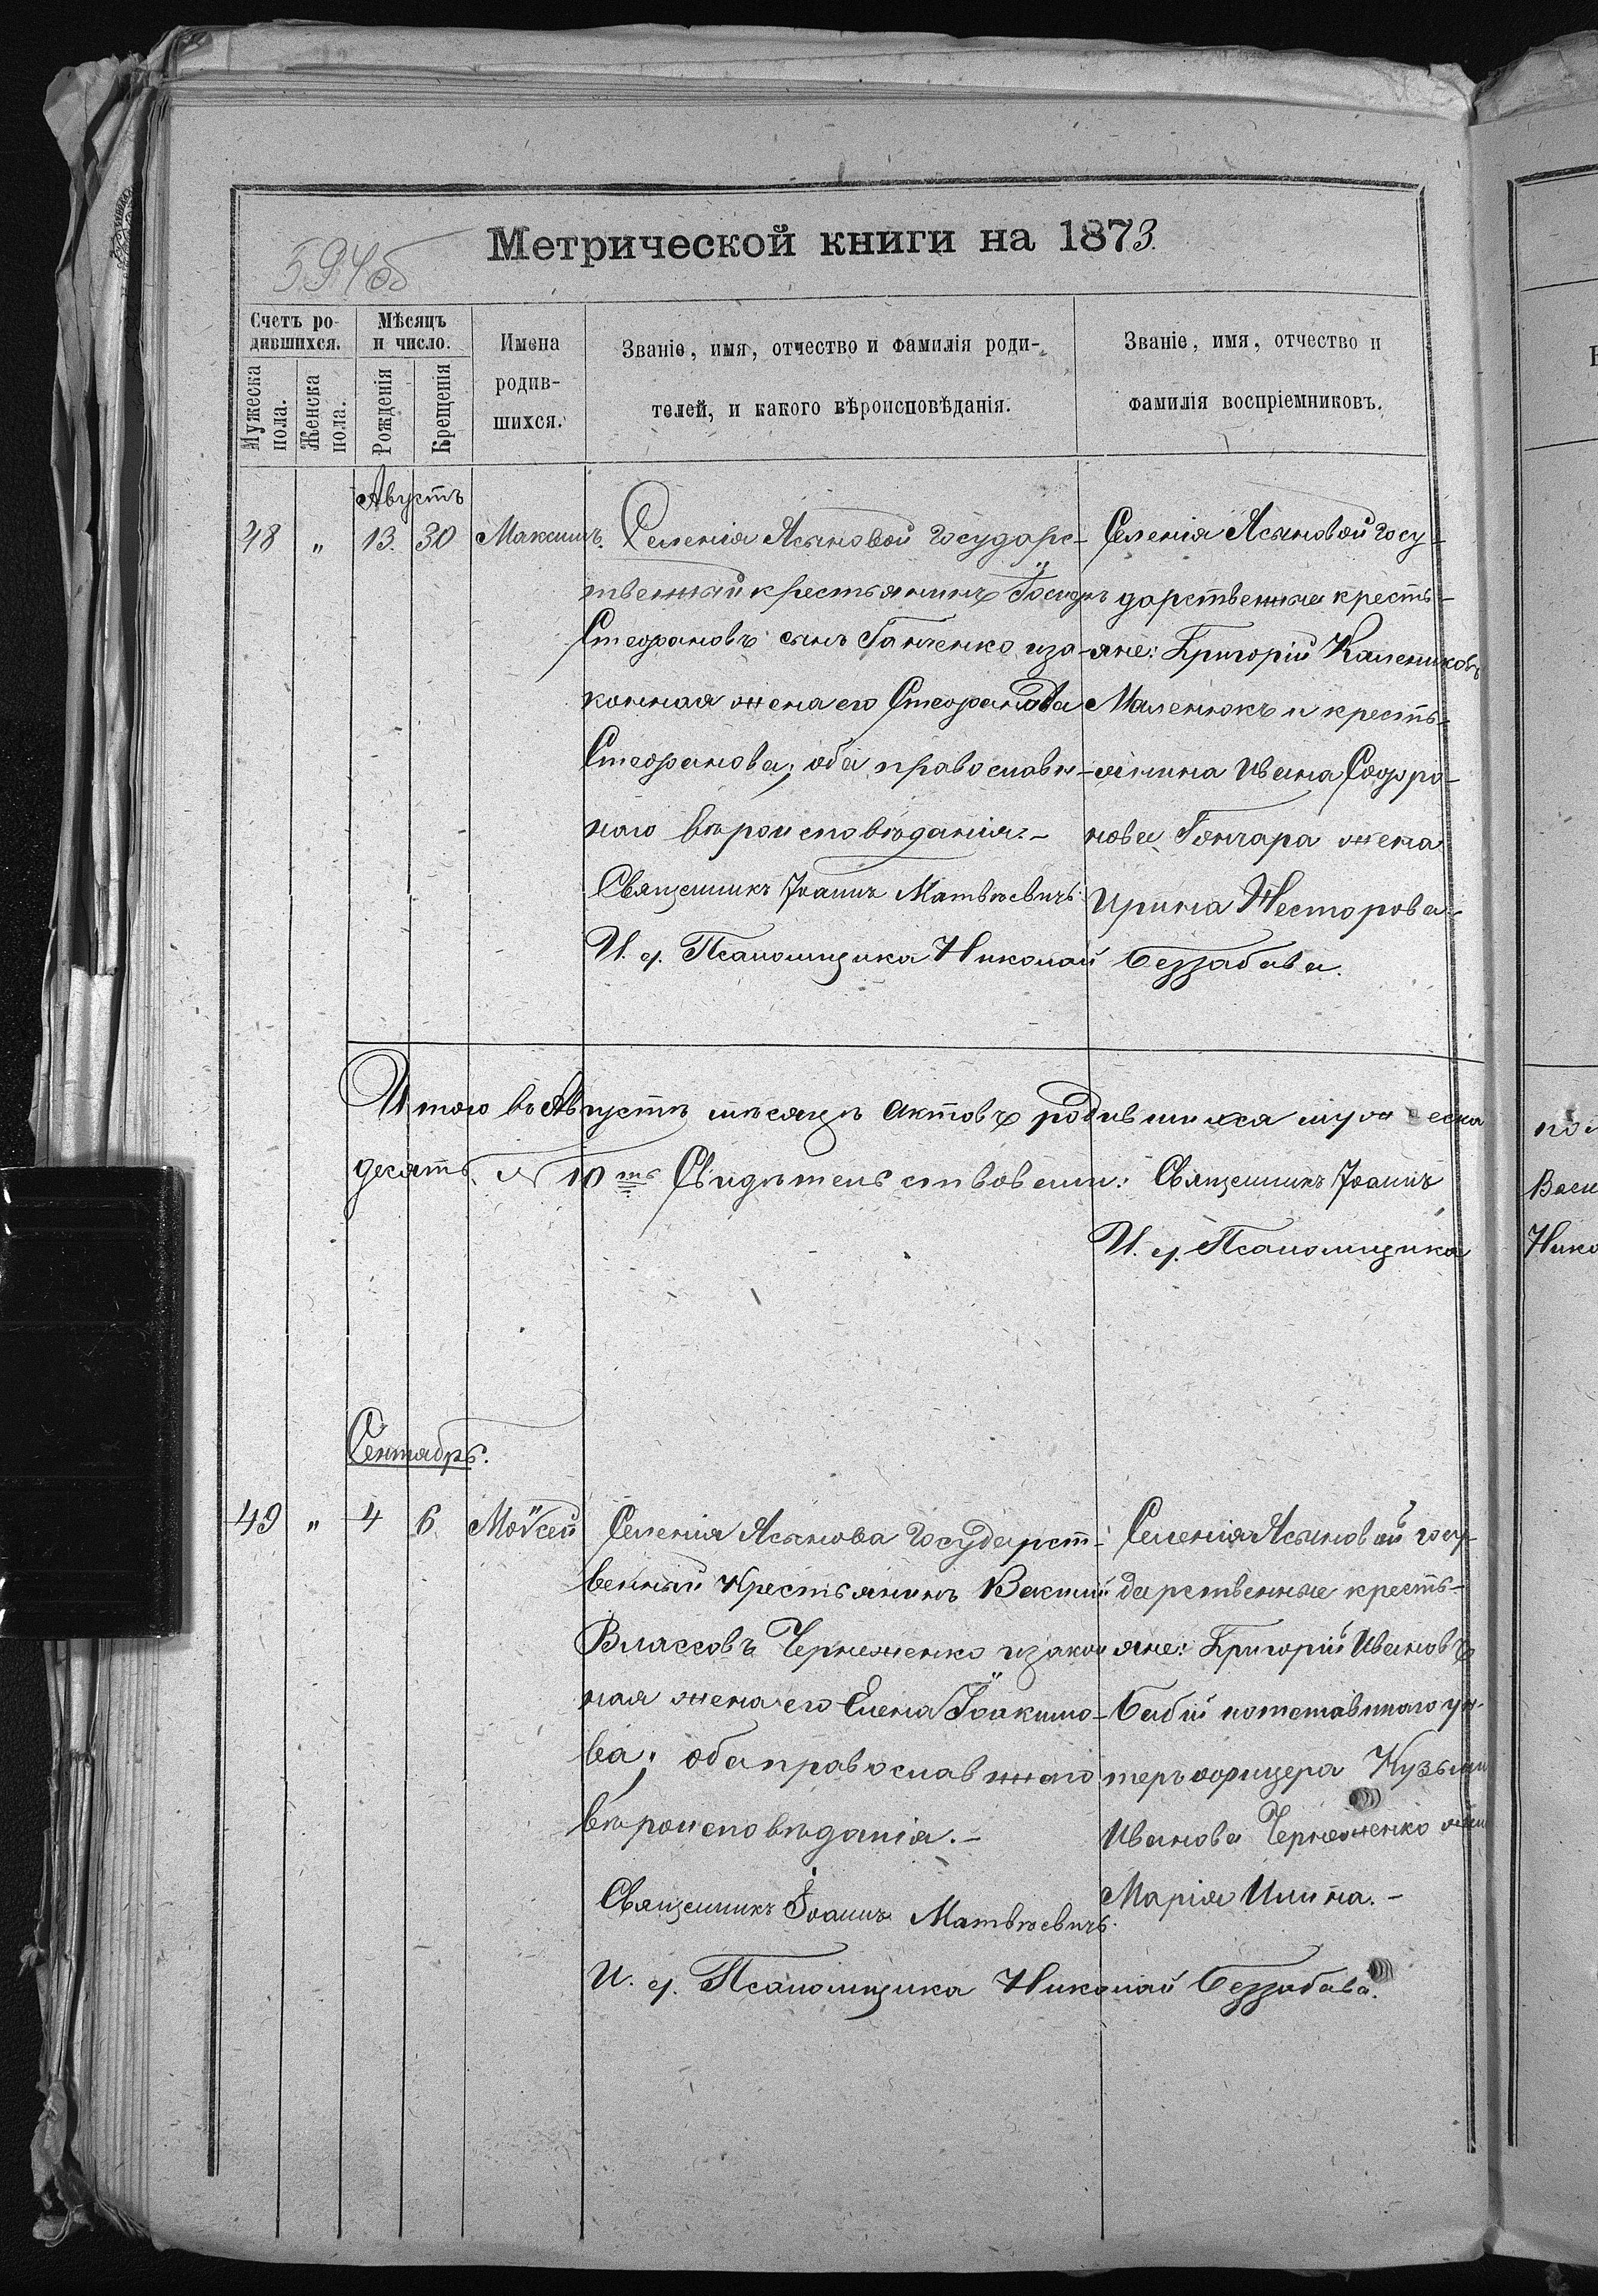 594об
Метрической книги на 1873.
Счетъ ро-
дившихся.
Мужеска пола.
Женска пола.
Мѣсяцъ
и число.
Рожденія
Крещенія
Имена
родив-
шихся.
Званіе, имя, отчество и фамилія роди-
телей, и какого вѣроисповѣданія.
Званіе, имя, отчество и
фамилія воспріемниковъ.
Августъ
48 " 13. 30 Максимъ.
Селенія Ясьновой государс-
твенный крестьянинъ
Стефановъ сынъ Ганченко иза-
конная жена его
Стефанова, оба православ-
наго вѣроисповѣданія.-
Священникъ Іоаннъ Матвѣевичъ.
И. д. Псаломщика Николай Беззабава.
Селенія Ясьновой госу-
дарственные кресть-
яне: Григорій Калениковъ
Маленюкъ и кресть-
янина Ивана Софро-
нова Гончара жена
Ирина Несторова.-
Итого въ Августѣ мѣсяцѣ актовъ родившихся мужеска
десять № 10ть Свидѣтельствовали: Священникъ Іоаннъ
И. д. Псаломщика
Сентябрь.
49 " 4 6 Мойсей
Селенія Ясьнова государст-
венный крестьянинъ
Влассовъ Чернеженко и закон
ная жена его Елена Іоакимо-
ва; оба православнаго
вѣроисповѣданія.-
Священникъ Іоаннъ Матвѣевичъ.
И. д. Псаломщика Николай Беззабава.
Селенія Ясьновой госу-
дарственные кресть-
яне: Григорій Ивановъ
Бабій и отставнаго ун-
теръ офицера Кузьми
Иванова Чернеженко
Марія Илина.-